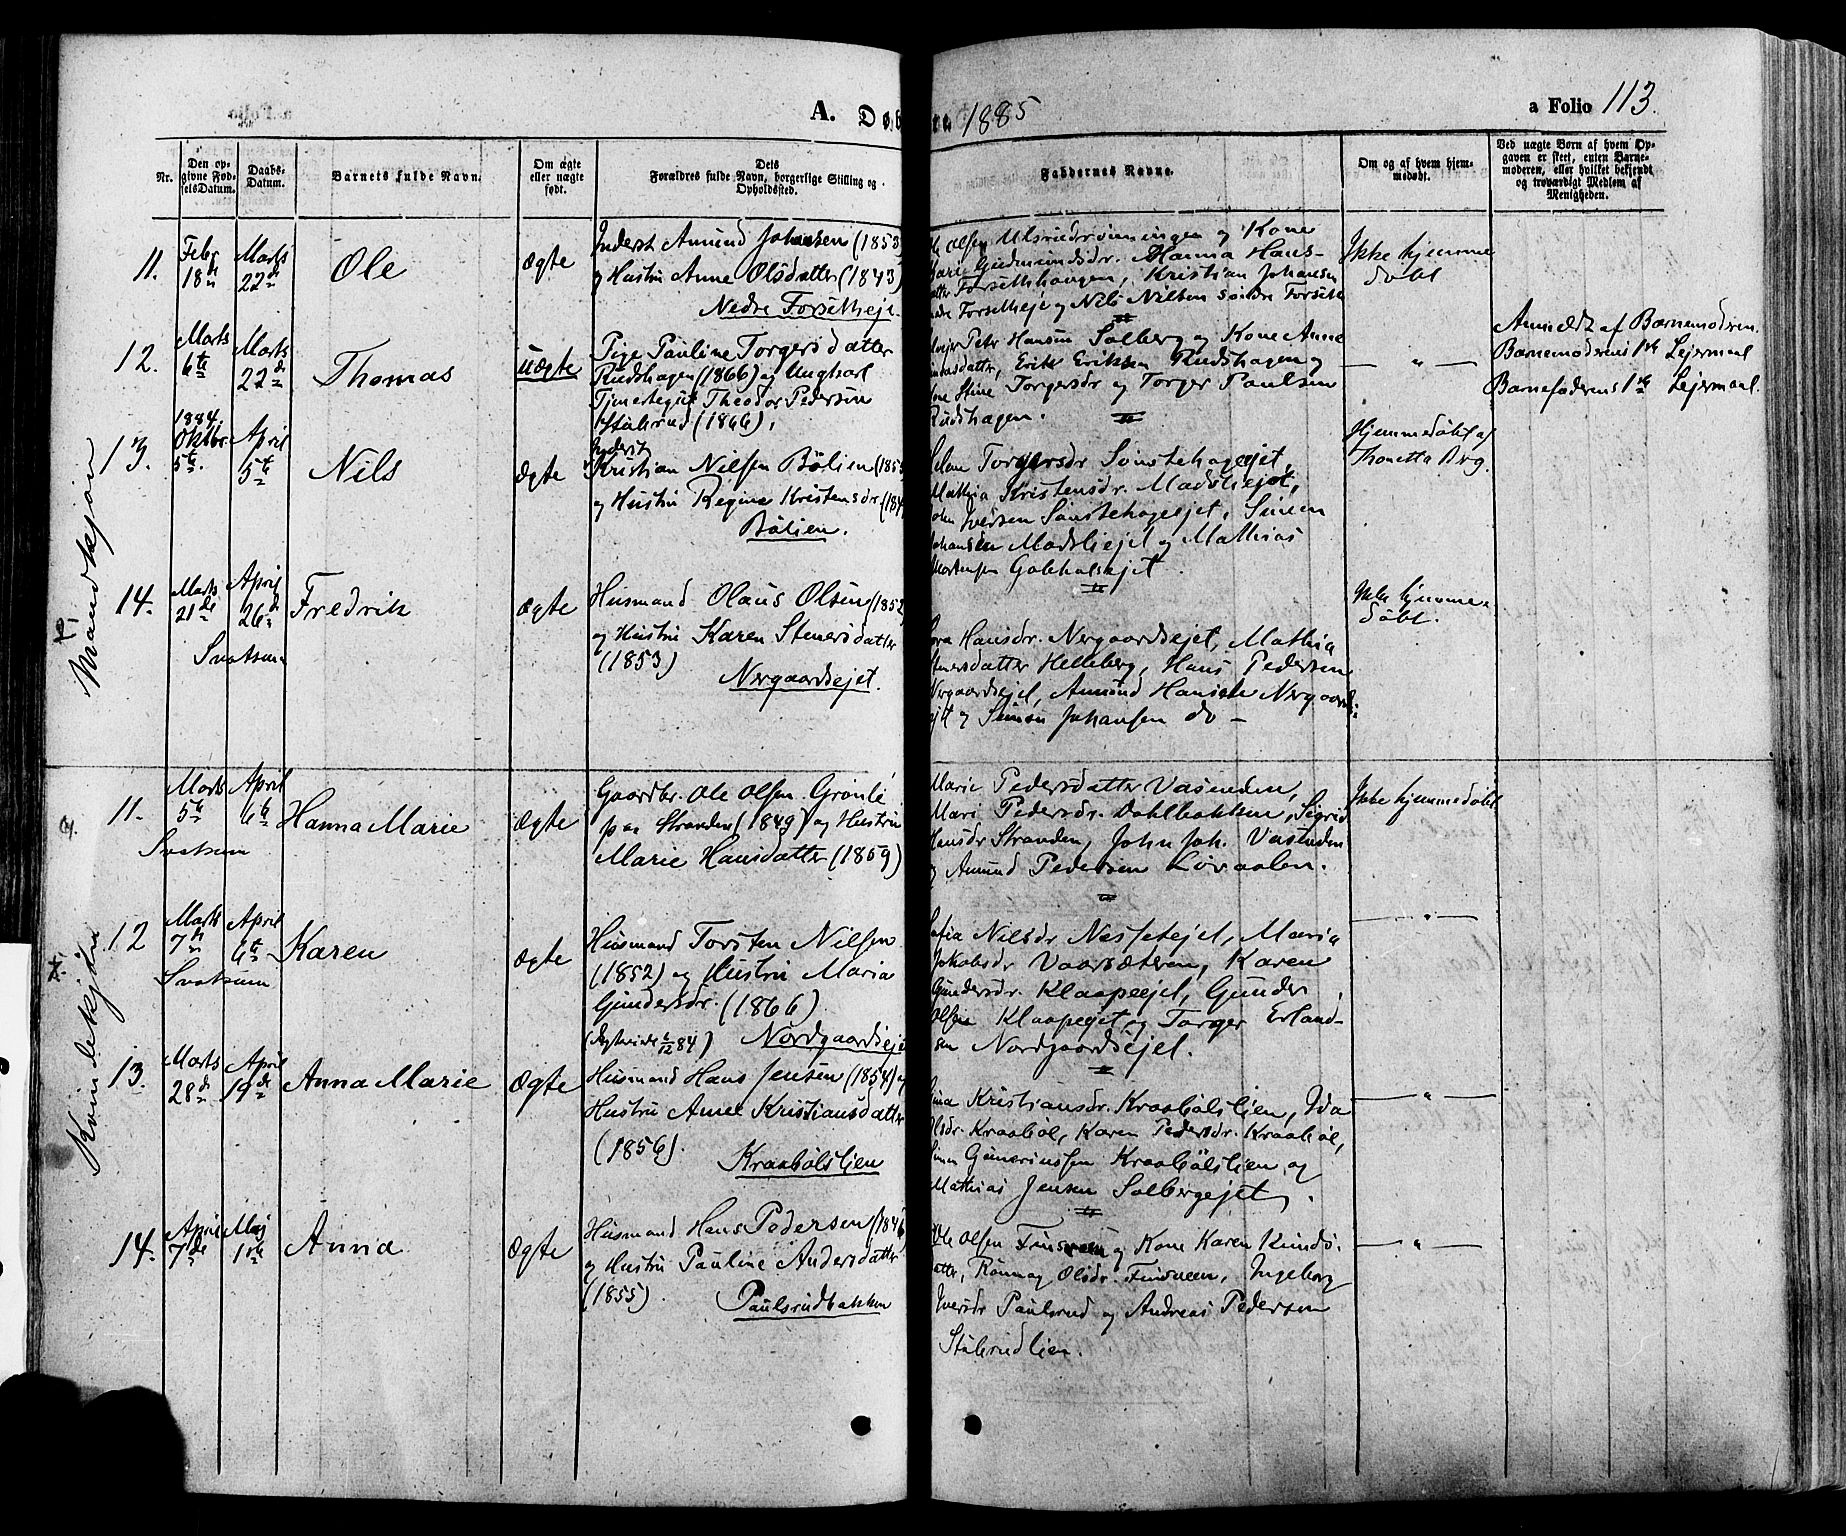 A. Døb
re 1885
a Folio 113.
Nr.
Den opgivne FødselsDatum.
Daabs-Datum.
Barnets fulde Navn.
Om ægte eller uægte født.
Dets Forældres fulde Navn, borgerlige Stilling og Opholdssted.
Faddernes Navne.
Om og af hvem hjemmedøbt.
Ved uægte Børn af hvem Opgaven er skeet, enten Barnemoderen, eller hvilket bekjendt og troværdigt Medlem af Menigheden.
Mandkjøn
11. Febr 18de Marts 22de Ole Ægte
Inderst Amund Johansen (1853)
og Hustru Anne Olsdatter (1843)
Nedre Forsetheje.
Ole Olsen Ulsrudrønningen og Kone
Mari Gudmundsdr. Hanna Hans-
datter Forsethhaugen, Kristian Johansen
Forsetheje og Nils Nilsen søndre Forseth
Ikke hjemme
døbt
12. Marts 6te Marts 22de Thomas Uægte
Pige Pauline Torgersdatter
Rudshagen (1866) og Ungkarl
Tjenestegut Theodor Pedersen
Stålsrud (1866),
Petr Hansen Solberg og Kone Anne
datter, Erik Eriksen Rudshagen og
Kone Stine Torgersdr og Torger Paulsen
Rudshagen.
— " —
Anmeldt af Barnemodren.
Barnemoderens 1ste Lejermaal
Barnefaderens 1ste Lejermaal.
13. 1884 Oktbr. 5te. April 5te Nils Ægte
Inderst
Kristian Nilsen Bölien (185
og Hustru Regine Kristensdr (184
Bölien.
Torgersdr Sönstehageejet,
Mathia Kristensdr. Madsliejet,
John Iversen Sönstehageejet, Simen
Johansen Madsliejet og Mathias
Mortensen
Hjemmedøbt af
Thonetta Brg.
14. Marts 21de April 26de Fredrik Ægte
Svatsum
Husmand Olaus Olsen (1852)
og Hustru Karen Stenersdatter
(1853)
Nergaardsejet.
Hansdr. Nergaardsejet, Mathia
Stenersdatter Helleberg, Hans Pedersen
Nergaardsejet, Amund Hansen Nergaards-
ejet og Simen Johansen do —
Ikke hjemme-
døbt.
Kvindekjøn
11. Marts 5te April 6te Hanna Marie Ægte
Svatsum
Gaardbr. Ole Olsen Grönli
paa Stranden (1849) og Hustru
Marie Hansdatter (1859)
Marie Pedersdatter Vasenden,
Mari Pedersdr. Dahlbakken, Sigrid
Hansdr Stranden, John Joh. Vasenden
og Amund Pedersen Lövaalen.
Ikke hjemmedøbt
12 Marts 7de April 6te Karen Ægte
Svatsum
Husmand Torsten Nilsen
(1852) og Hustru Maria
Gundersdr. (1866)
(Ægteviede 6/12 84) Nordgaardseje
Sofia Nilsdr Nessetejet, Maria
Jakobsdr Vaarsæteren, Karen
Gundersdr. Klaapeejet, Gunder
Olsen Klaapeejet og Torger Erland-
sen Nordgaardsejet.
— " —
13. Marts 28de April 19de Anna Marie Ægte
Husmand Hans Jensen (1854) og
Hustru Anne Kristiansdatter
(1856).
Kraabölslien
Kristiansdr. Kraabölslien, Ida
Olsdr. Kraaböl, Karen Pedersdr. Kraaböl,
Simen Guneriussen Kraabölslien, og
Mathias Jensen Solbergejet.
— " —
14. April 7de Maj 1ste Anna Ægte
Husmand Hans Pedersen (1846)
og Hustru Pauline Andersdatter
(1855).
Paulsrudbakken
Ole Olsen Finsveen og Kone Karen Knuds-
datter, Rönnaug Olsdr. Finsveen, Ingeborg
Iversdr Paulsrud og Andreas Pedersen
Stålsrudlien.
— " —